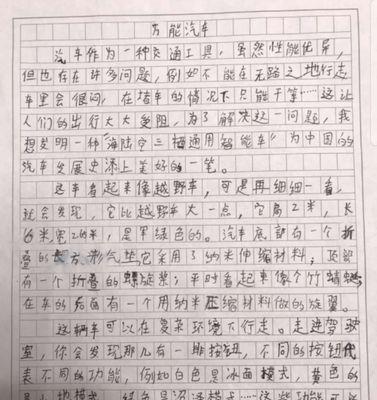 万能汽车
汽车作为一种交通工具，虽然性能优异，
但也存在许多问题，例如不能在无路之地行走
车里会很闷，在堵车的情况下只能干等……这让
人们的出行大大受阻，为了解决这一问题，我
想发明一种“海陆空三栖通用智能车”为中国的
汽车发展史添上美好的一笔。
这车看起来像越野车，可是再细细一看，
就会发现，它比越野车大一点，它高2米，长
6米宽2.6米，是军绿色的。汽车底部有一个折
叠的长方形气垫它采用了纳米伸缩材料；顶部
有一个折叠的螺旋桨；平时看起来像个竹蜻蜓
在车的后面有一个用纳米压缩材料做的旋翼。
这辆车可以在复杂环境下行走。走进驾驶
室，你会发现那儿有一排按钮，不同的按钮代
表不同的功能，例如白色是冰面模式，黄色的
是山地模式，绿色是沼泽模式……这些功能可